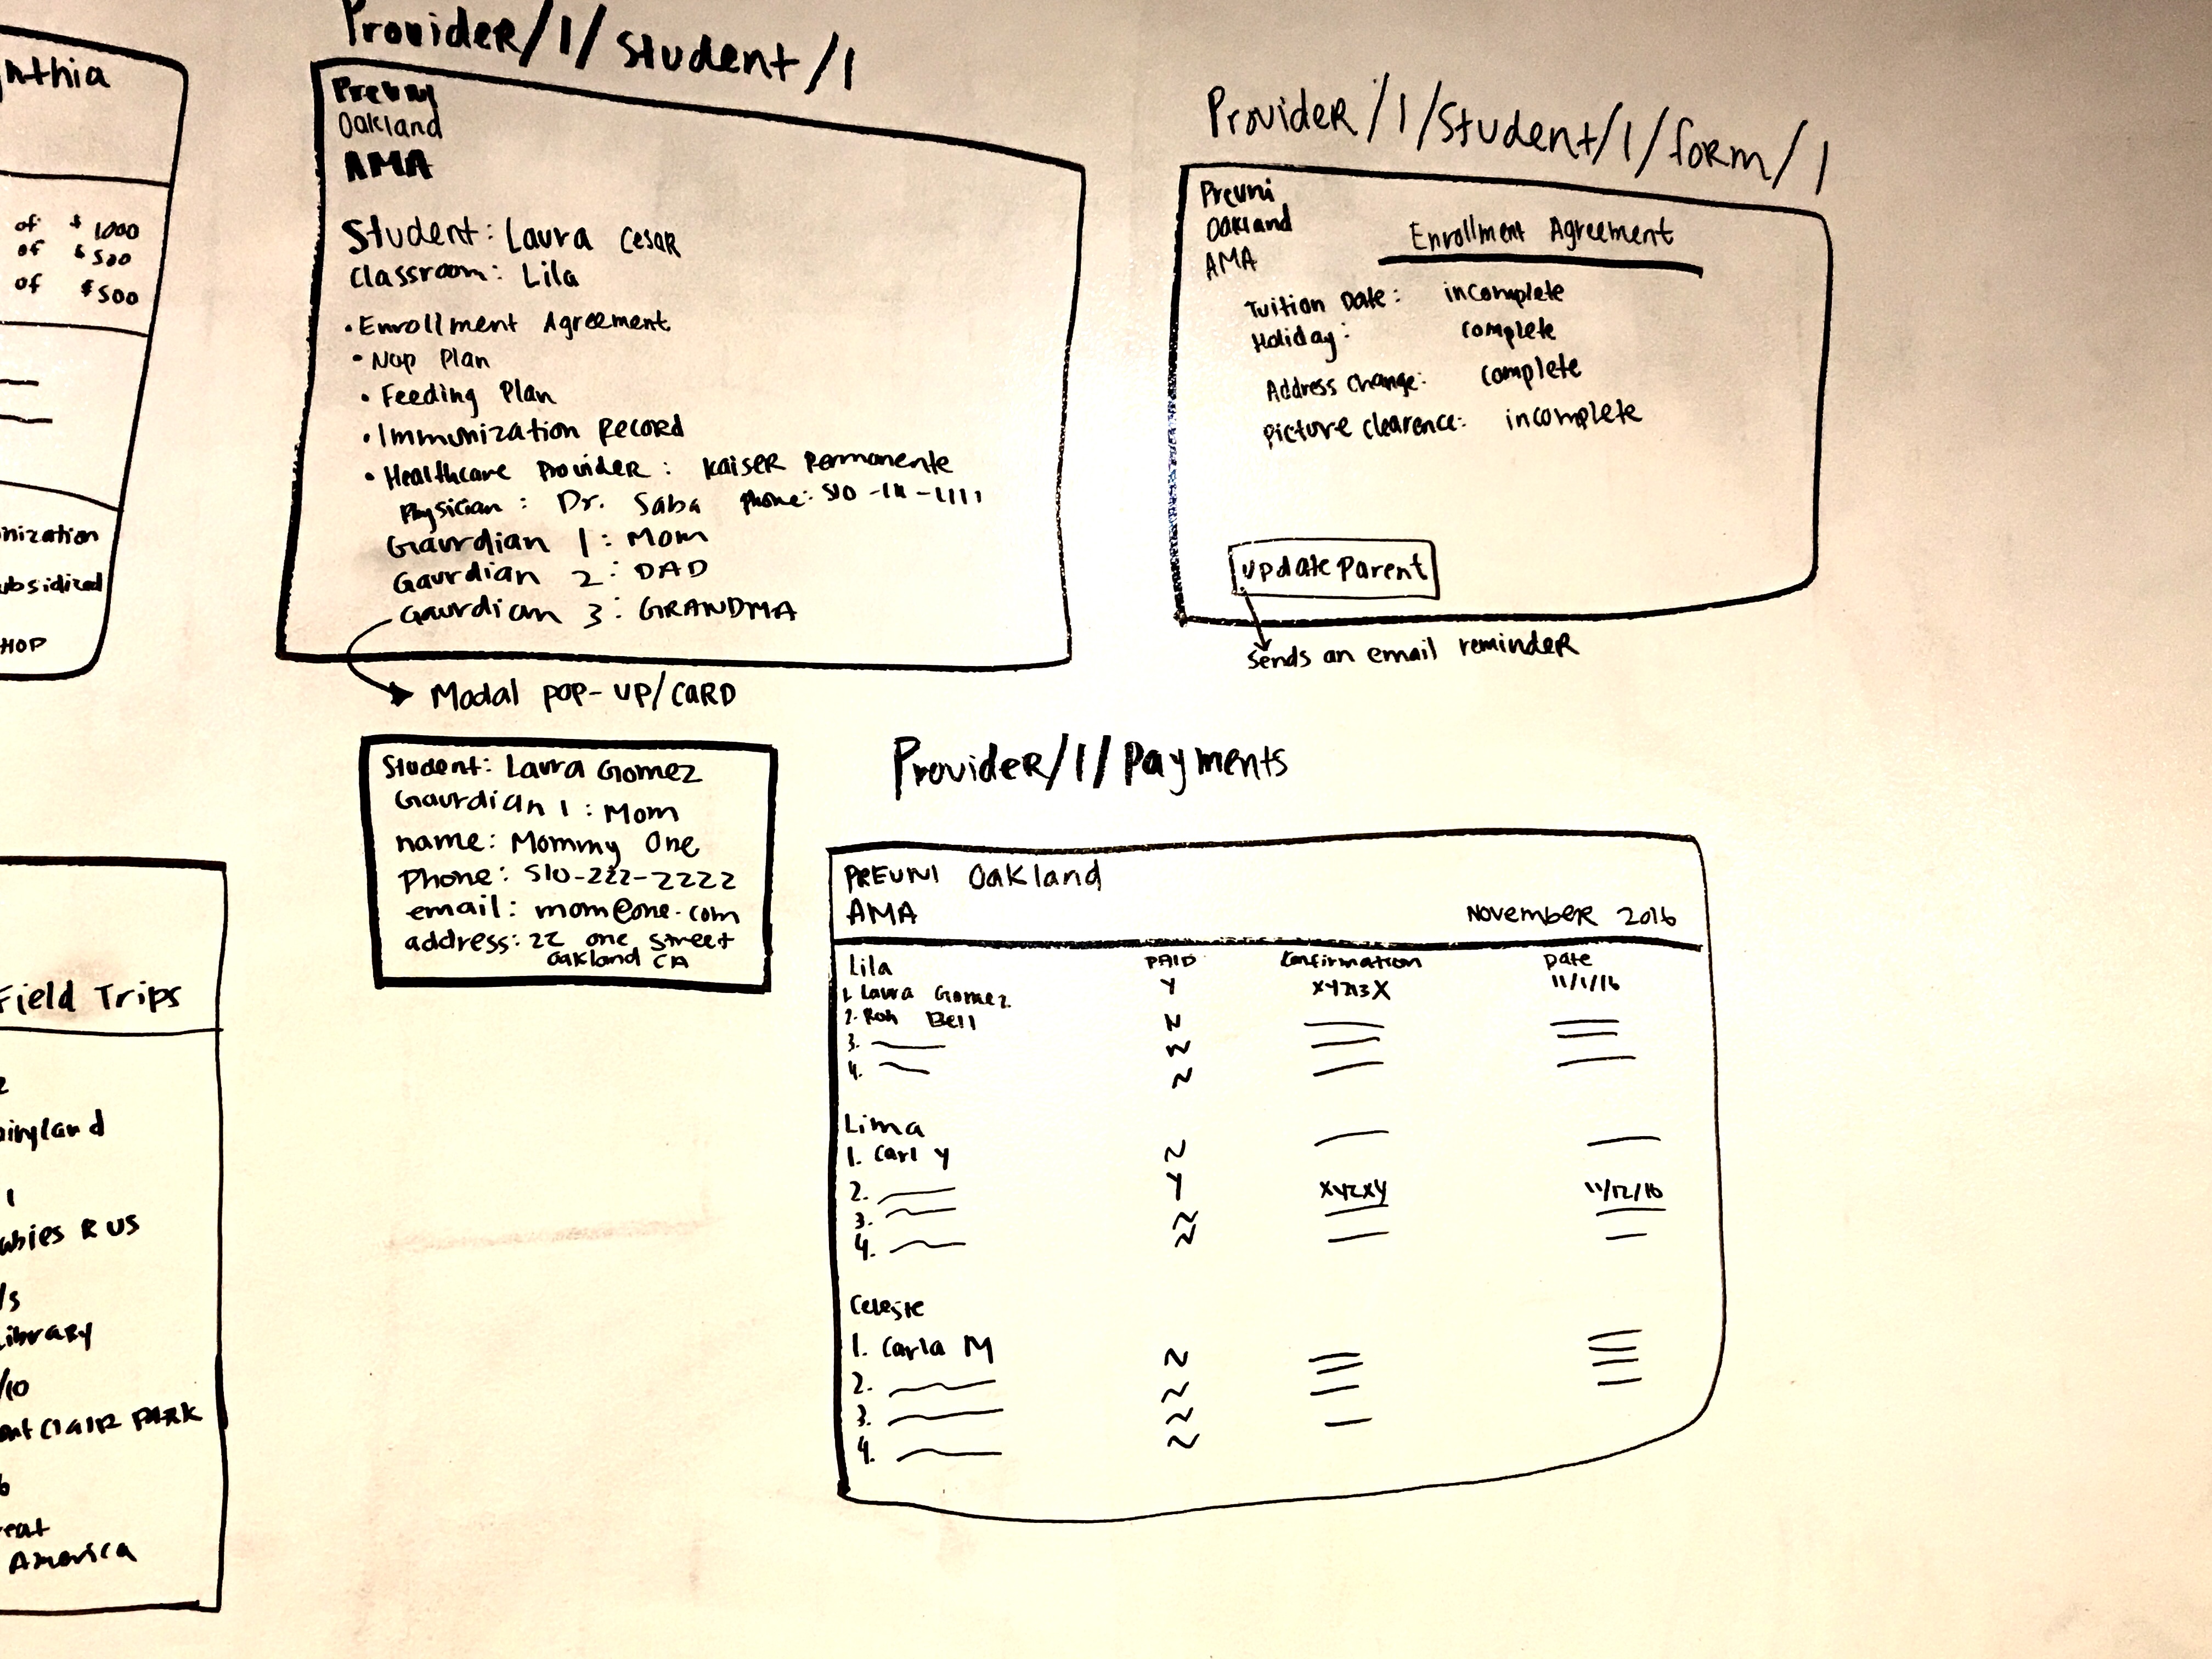 nthia
of $1000
of $500
of $500
nization
ubsidized
HOP
Provider/1/student/1
Preuni
Oakland
AMA
Student: Laura Cesar
Classroom: Lila
• Enrollment Agreement
• Nap Plan
• Feeding Plan
• Immunization Record
• Healthcare Provider: Kaiser Permanente
Physician: Dr. Saba Phone: 510-111-1111
Gaurdian 1: Mom
Gaurdian 2: DAD
Gaurdian 3: GRANDMA
Modal POP-UP/CARD
Student: Laura Gomez
Gaurdian 1: Mom
name: Mommy One
Phone: 510-222-2222
email: mom@one.com
address: 22 one street
Oakland CA
Provider/1/student/1/form/1
Preuni
Oakland
AMA
Enrollment Agreement
Tuition Date: incomplete
Holiday: complete
Address change: complete
picture clearence: incomplete
update Parent
Sends an email reminder
Provider/1/Payments
PREUNI Oakland
AMA
November 2016
Lila PAID Confirmation Date
1. Laura Gomez Y 11/1/16
2. Ron Bell N
3. N
4. N
Lima
1. Carl Y N
2. Y XYZXY 11/12/16
3. N
4. N
Celeste
1. Carla M N
2. N
3. N
4. N
Field Trips
iryland
1
abies R US
/s
Library
/10
ent Clair PARK
reat
America